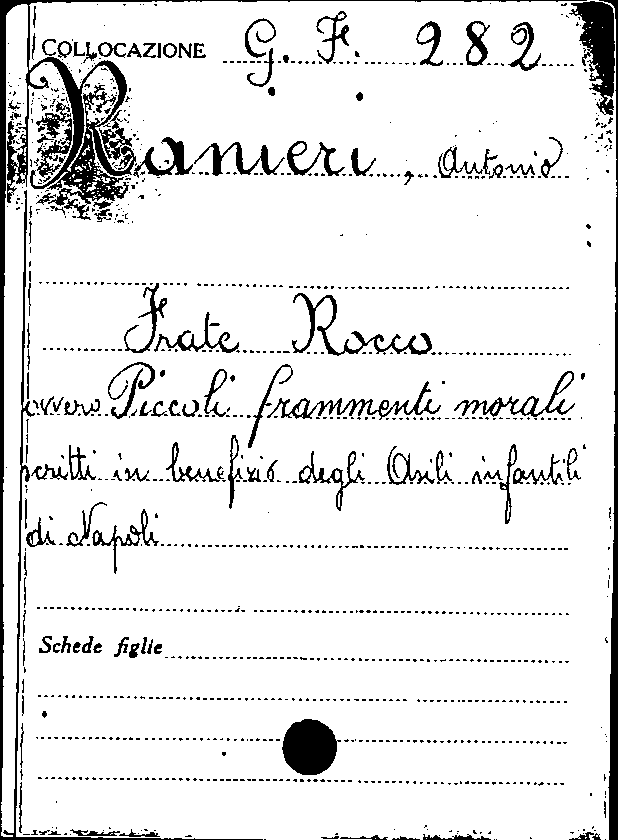 COLLOCAZIONE G. F. 282
Ranieri, Antonio
Frate Rocco
ovvero Piccoli frammenti morali
scritti in benefizio degli Asili infantili
di Napoli
Schede figlie